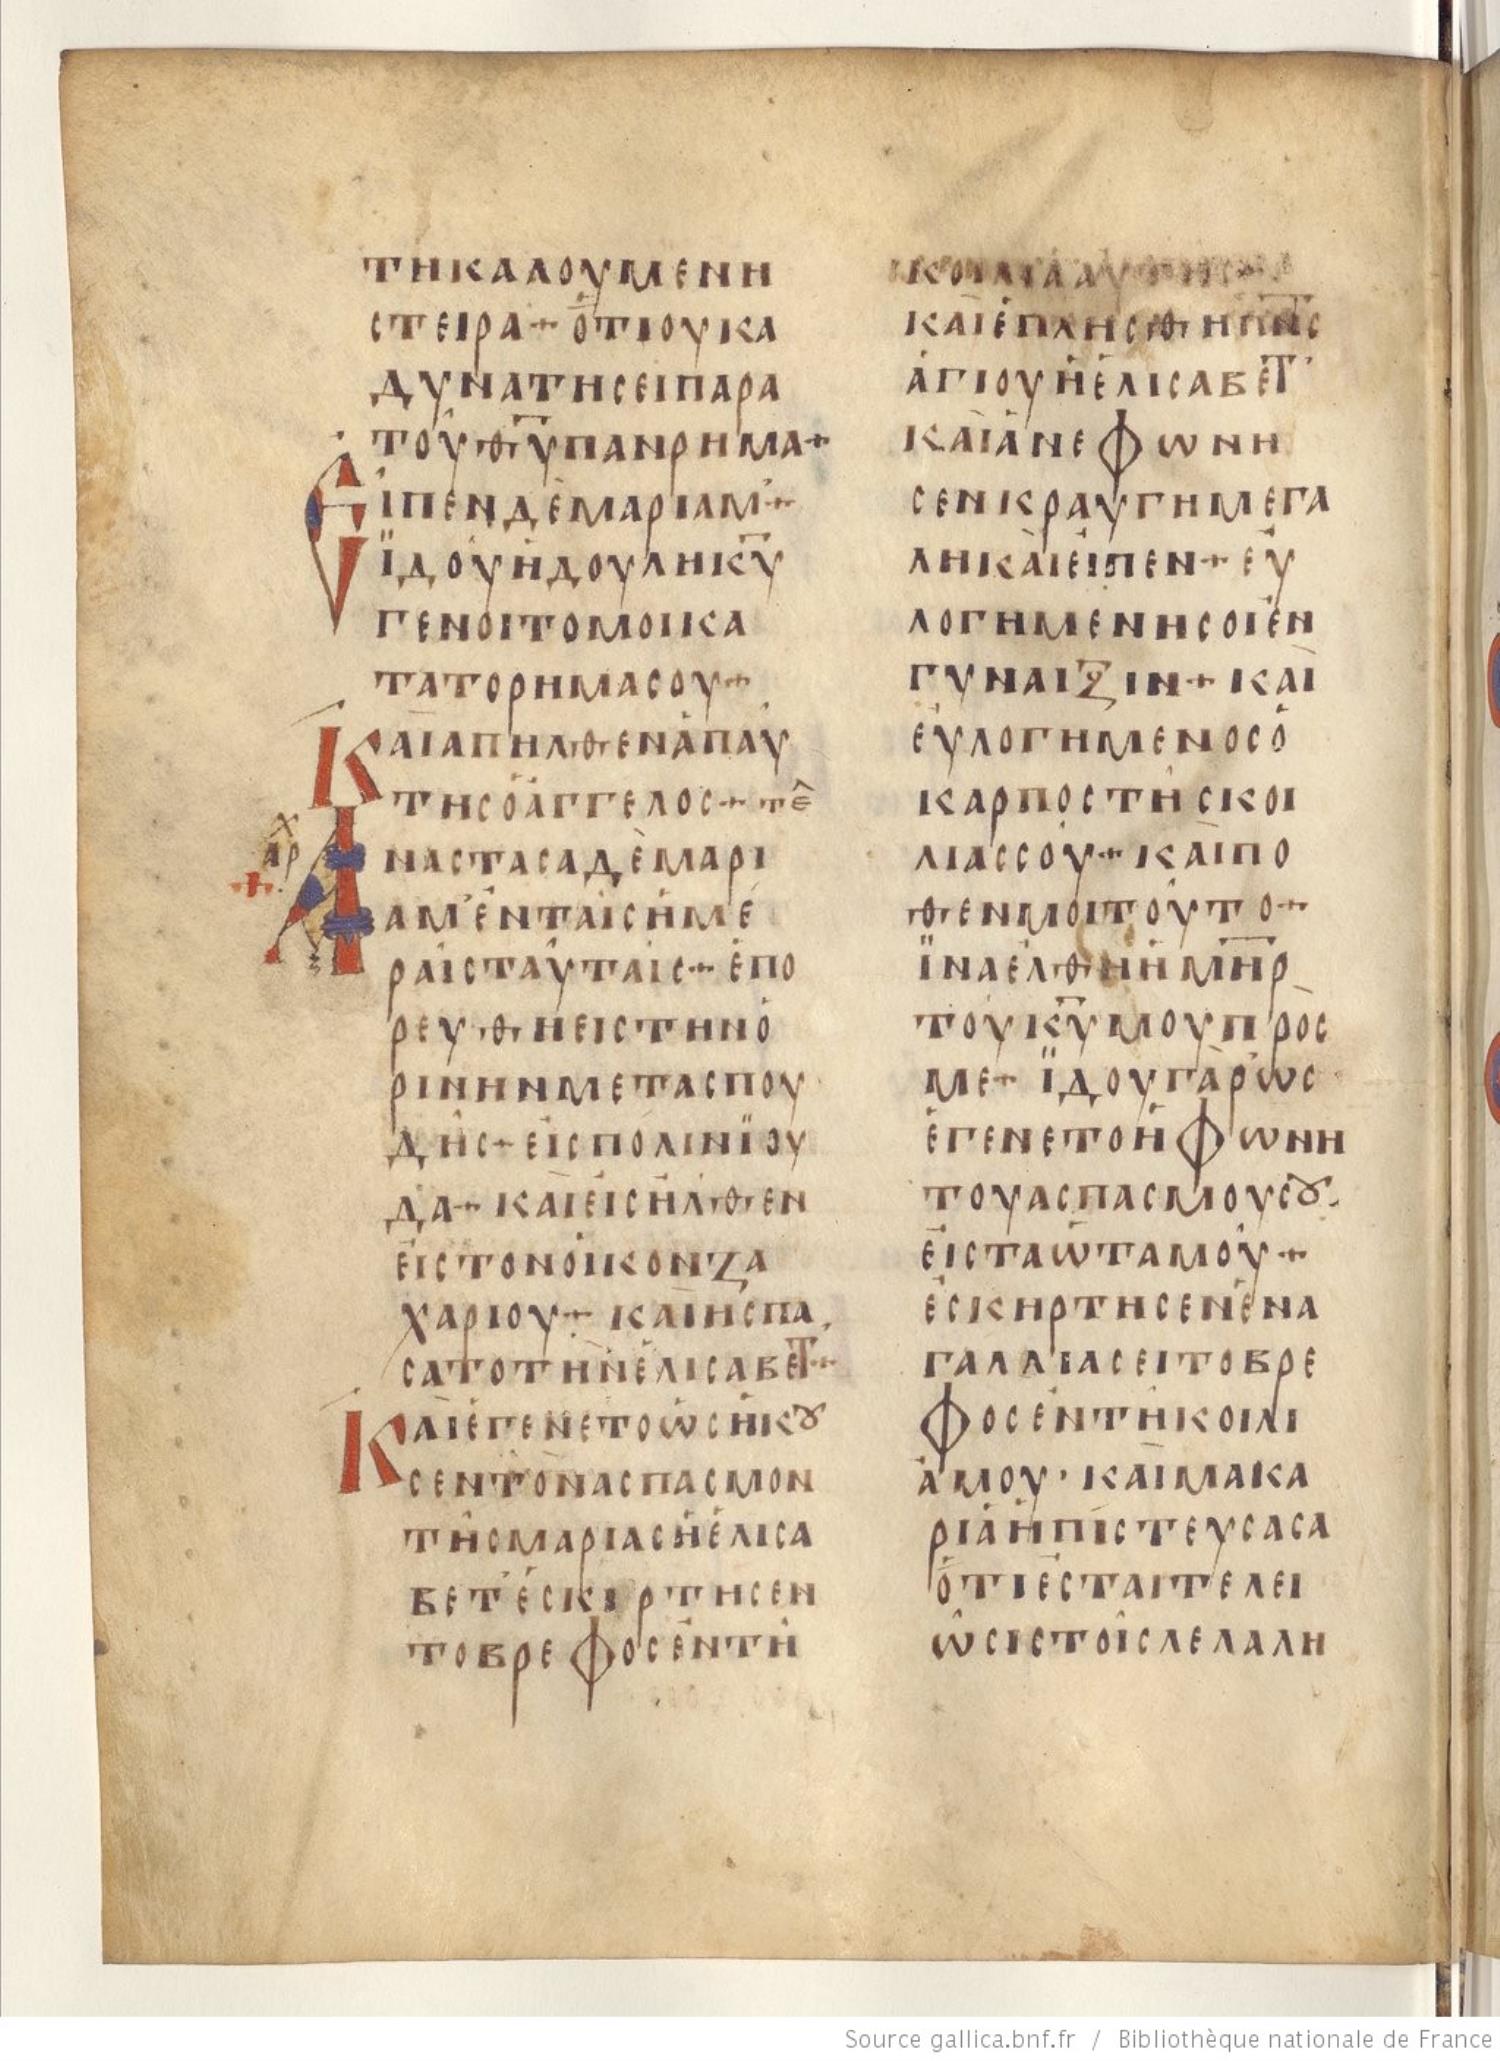 ΤΗΚΑΛΟΥΜΕΝΗ
ϹΤΕΙΡΑ + ὉΤΙΟΥΚΑ
ΔΥΝΑΤΗϹΕΙΠΑΡΑ
ΤΟΥΘ̅Υ̅ΠΑΝΡΗΜΑ +
ΕΙΠΕΝΔΕΜΑΡΙΑΜ +
ΪΔΟΥΗΔΟΥΛΗΚ̅Υ̅
ΓΕΝΟΙΤΟΜΟΙΚΑ
ΤΑΤΟΡΗΜΑϹΟΥ +
ΚΑΙΑΠΗΛΘΕΝΑΠΑΥ
ΤΗϹΟΑΓΓΕΛΟϹ + τε
αρχ
ΑΝΑϹΤΑϹΑΔΕΜΑΡΙ
ΑΜΕΝΤΑΙϹΗΜΕ
ΡΑΙϹΤΑΥΤΑΙϹ + ΕΠΟ
ΡΕΥΘΗΕΙϹΤΗΝΟ
ΡΙΝΗΝΜΕΤΑϹΠΟΥ
ΔΗϹ + ΕΙϹΠΟΛΙΝΪΟΥ
ΔΑ + ΚΑΙΕΙϹΗΛΘΕΝ
ΕΙϹΤΟΝΟΙΚΟΝΖΑ
ΧΑΡΙΟΥ + ΚΑΙΗϹΠΑ
ϹΑΤΟΤΗΝΕΛΙϹΑΒΕΤ +
ΚΑΙΕΓΕΝΕΤΟΩϹΗΚȣ
ϹΕΝΤΟΝΑϹΠΑϹΜΟΝ
ΤΗϹΜΑΡΙΑϹΗΕΛΙϹΑ
ΒΕΤ᾽ΕϹΚΙΡΤΗϹΕΝ
ΤΟΒΡΕΦΟϹΕΝΤΗ
ΚΟΙΛΙΑΑΥΤΗϹ +
ΚΑΙΕΠΛΗϹΘΗΠ̅Ν̅Ϲ̅
ΑΓΙΟΥΗΕΛΙϹΑΒΕΤ᾽
ΚΑΙΑΝΕΦΩΝΗ
ϹΕΝΚΡΑΥΓΗΜΕΓΑ
ΛΗΚΑΙΕΙΠΕΝ + ΕΥ
ΛΟΓΗΜΕΝΗϹΟΙΕΝ
ΓΥΝΑΙΞΙΝ + ΚΑΙ
ΕΥΛΟΓΗΜΕΝΟϹΟ
ΚΑΡΠΟϹΤΗϹΚΟΙ
ΛΙΑϹϹΟΥ + ΚΑΙΠΟ
ΘΕΝΜΟΙΤΟΥΤΟ +
ΪΝΑΕΛΘΗΗΜ̅Η̅Ρ̅
ΤΟΥΚ̅Υ̅ΜΟΥΠΡΟϹ
ΜΕ + ΪΔΟΥΓΑΡΩϹ
ΕΓΕΝΕΤΟΗΦΩΝΗ
ΤΟΥΑϹΠΑϹΜΟΥϹȣ.
ΕΙϹΤΑΩΤΑΜΟΥ +
ΕϹΚΗΡΤΗϹΕΝΕΝΑ
ΓΑΛΛΙΑϹΕΙΤΟΒΡΕ
ΦΟϹΕΝΤΗΚΟΙΛΙ
ΑΜΟΥ · ΚΑΙΜΑΚΑ
ΡΙΑΗΠΙϹΤΕΥϹΑϹΑ
ὉΤΙΕϹΤΑΙΤΕΛΕΙ
ΩϹΙϹΤΟΙϹΛΕΛΑΛΗ
Source gallica.bnf.fr / Bibliothèque nationale de France